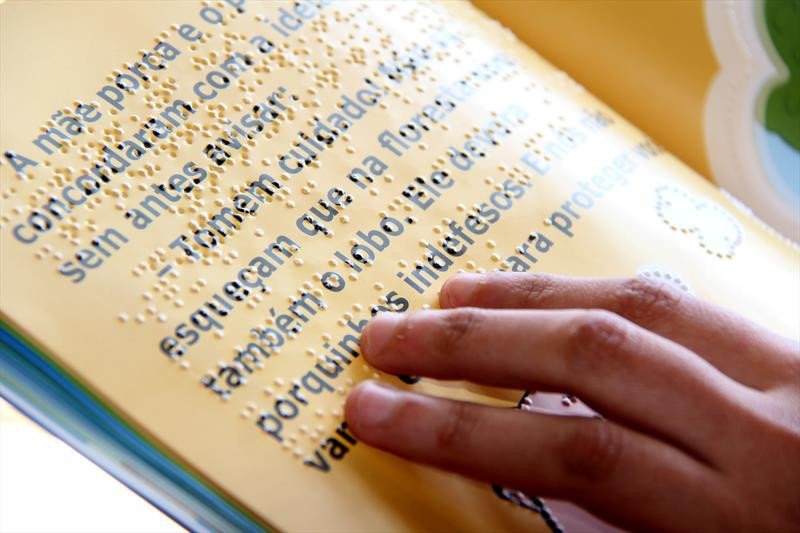 A mãe porca e o p
concordaram com a idei
sem antes avisar:
– Tomem cuidado!
esqueçam que na floresta
também o lobo. Ele devora
porquinhos indefesos. E nós não
vam ara proteger